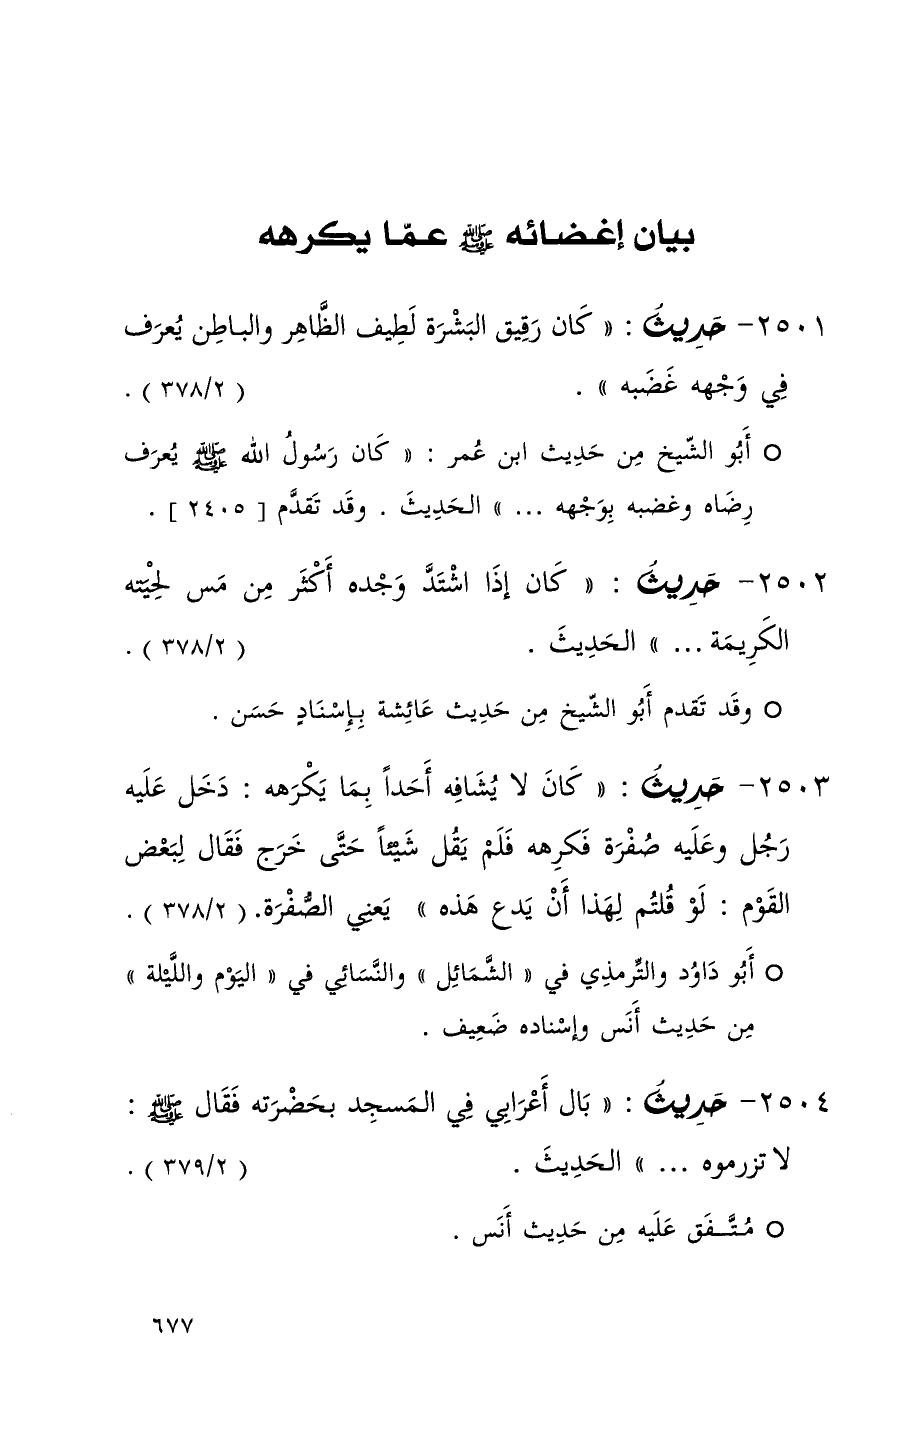 بيان إغضائه ﷺ عمّا يكرهه
٢٥٠١- حَدِيثُ : « كَان رَقِيق البَشْرَة لَطِيف الظَّاهِر والباطِن يُعرَف
فِي وَجْهه غَضَبه » . ( ٣٧٨/٢ ) .
○ أَبُو الشّيخ مِن حَدِيث ابن عُمر : « كَان رَسُولُ الله ﷺ يُعرَف
رِضَاه وغضبه بِوَجْهه ... » الحَدِيثَ . وقَد تَقدَّم [ ٢٤٠٥ ] .
٢٥٠٢- حَدِيثُ : « كَان إِذَا اشْتَدَّ وَجْده أَكْثَر مِن مَس لِحْيَته
الكَرِيمَة ... » الحَدِيثَ . ( ٣٧٨/٢ ) .
○ وقَد تَقدم أَبُو الشّيخ مِن حَدِيث عَائِشة بِإِسْنَادٍ حَسَن .
٢٥٠٣- حَدِيثُ : « كَانَ لا يُشَافِه أَحَداً بِمَا يَكْرَهه : دَخَل عَلَيه
رَجُل وعَلَيه صُفْرَة فَكرِهه فَلَمْ يَقُل شَيْئاً حَتَّى خَرَج فَقَال لِبَعْض
القَوْم : لَوْ قُلتُم لِهَذا أَنْ يَدع هَذه » يَعنِي الصُّفْرَة. ( ٣٧٨/٢ ) .
○ أَبُو دَاوُد والتِّرمذِي في « الشَّمَائِل » والنَّسَائِي في « اليَوْم واللَّيْلة »
مِن حَدِيث أَنَس وإِسْناده ضَعِيف .
٢٥٠٤- حَدِيثُ : « بَال أَعْرَابِي فِي المَسجِد بحَضْرَته فَقَال ﷺ :
لا تزرموه ... » الحَدِيثَ . ( ٣٧٩/٢ ) .
○ مُتَّفَق عَلَيه مِن حَدِيث أَنَس .
٦٧٧